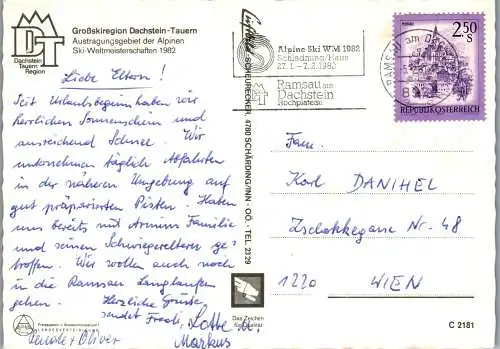 Großskiregion Dachstein-Tauern
Austragungsgebiet der Alpinen
Ski-Weltmeisterschaften 1982
DT
Dachstein
Tauern
Region
Liebe Eltern!
Seit Urlaubsbeginn haben wir
herrlichen Sonnenschein und
ausreichend Schnee. Wir
unternehmen täglich Abfahrten
in der näheren Umgebung auf
gut präparierten Pisten. Haben
uns bereits mit Armins Familie
und seinen Schwiegereltern ge-
troffen. Wir wollen auch noch
in die Ramsau Langlaufen
gehen. Herzliche Grüße
sendet Fredi, Lotte m.
Markus
Renate + Oliver
SCHEURECKER, 4780 SCHÄRDING/INN - OÖ. - TEL. 23 29
Das Zeichen
für Qualität
Alpine Ski WM 1982
Schladming/Haus
27.1.-7.2.1982
Ramsau am
Dachstein
Hochplateau
RAMSAU am
2.50
S
REPUBLIK ÖSTERREICH
Fam.
Karl DANIHEL
Zschokkegasse Nr. 48
1220 WIEN
C 2181